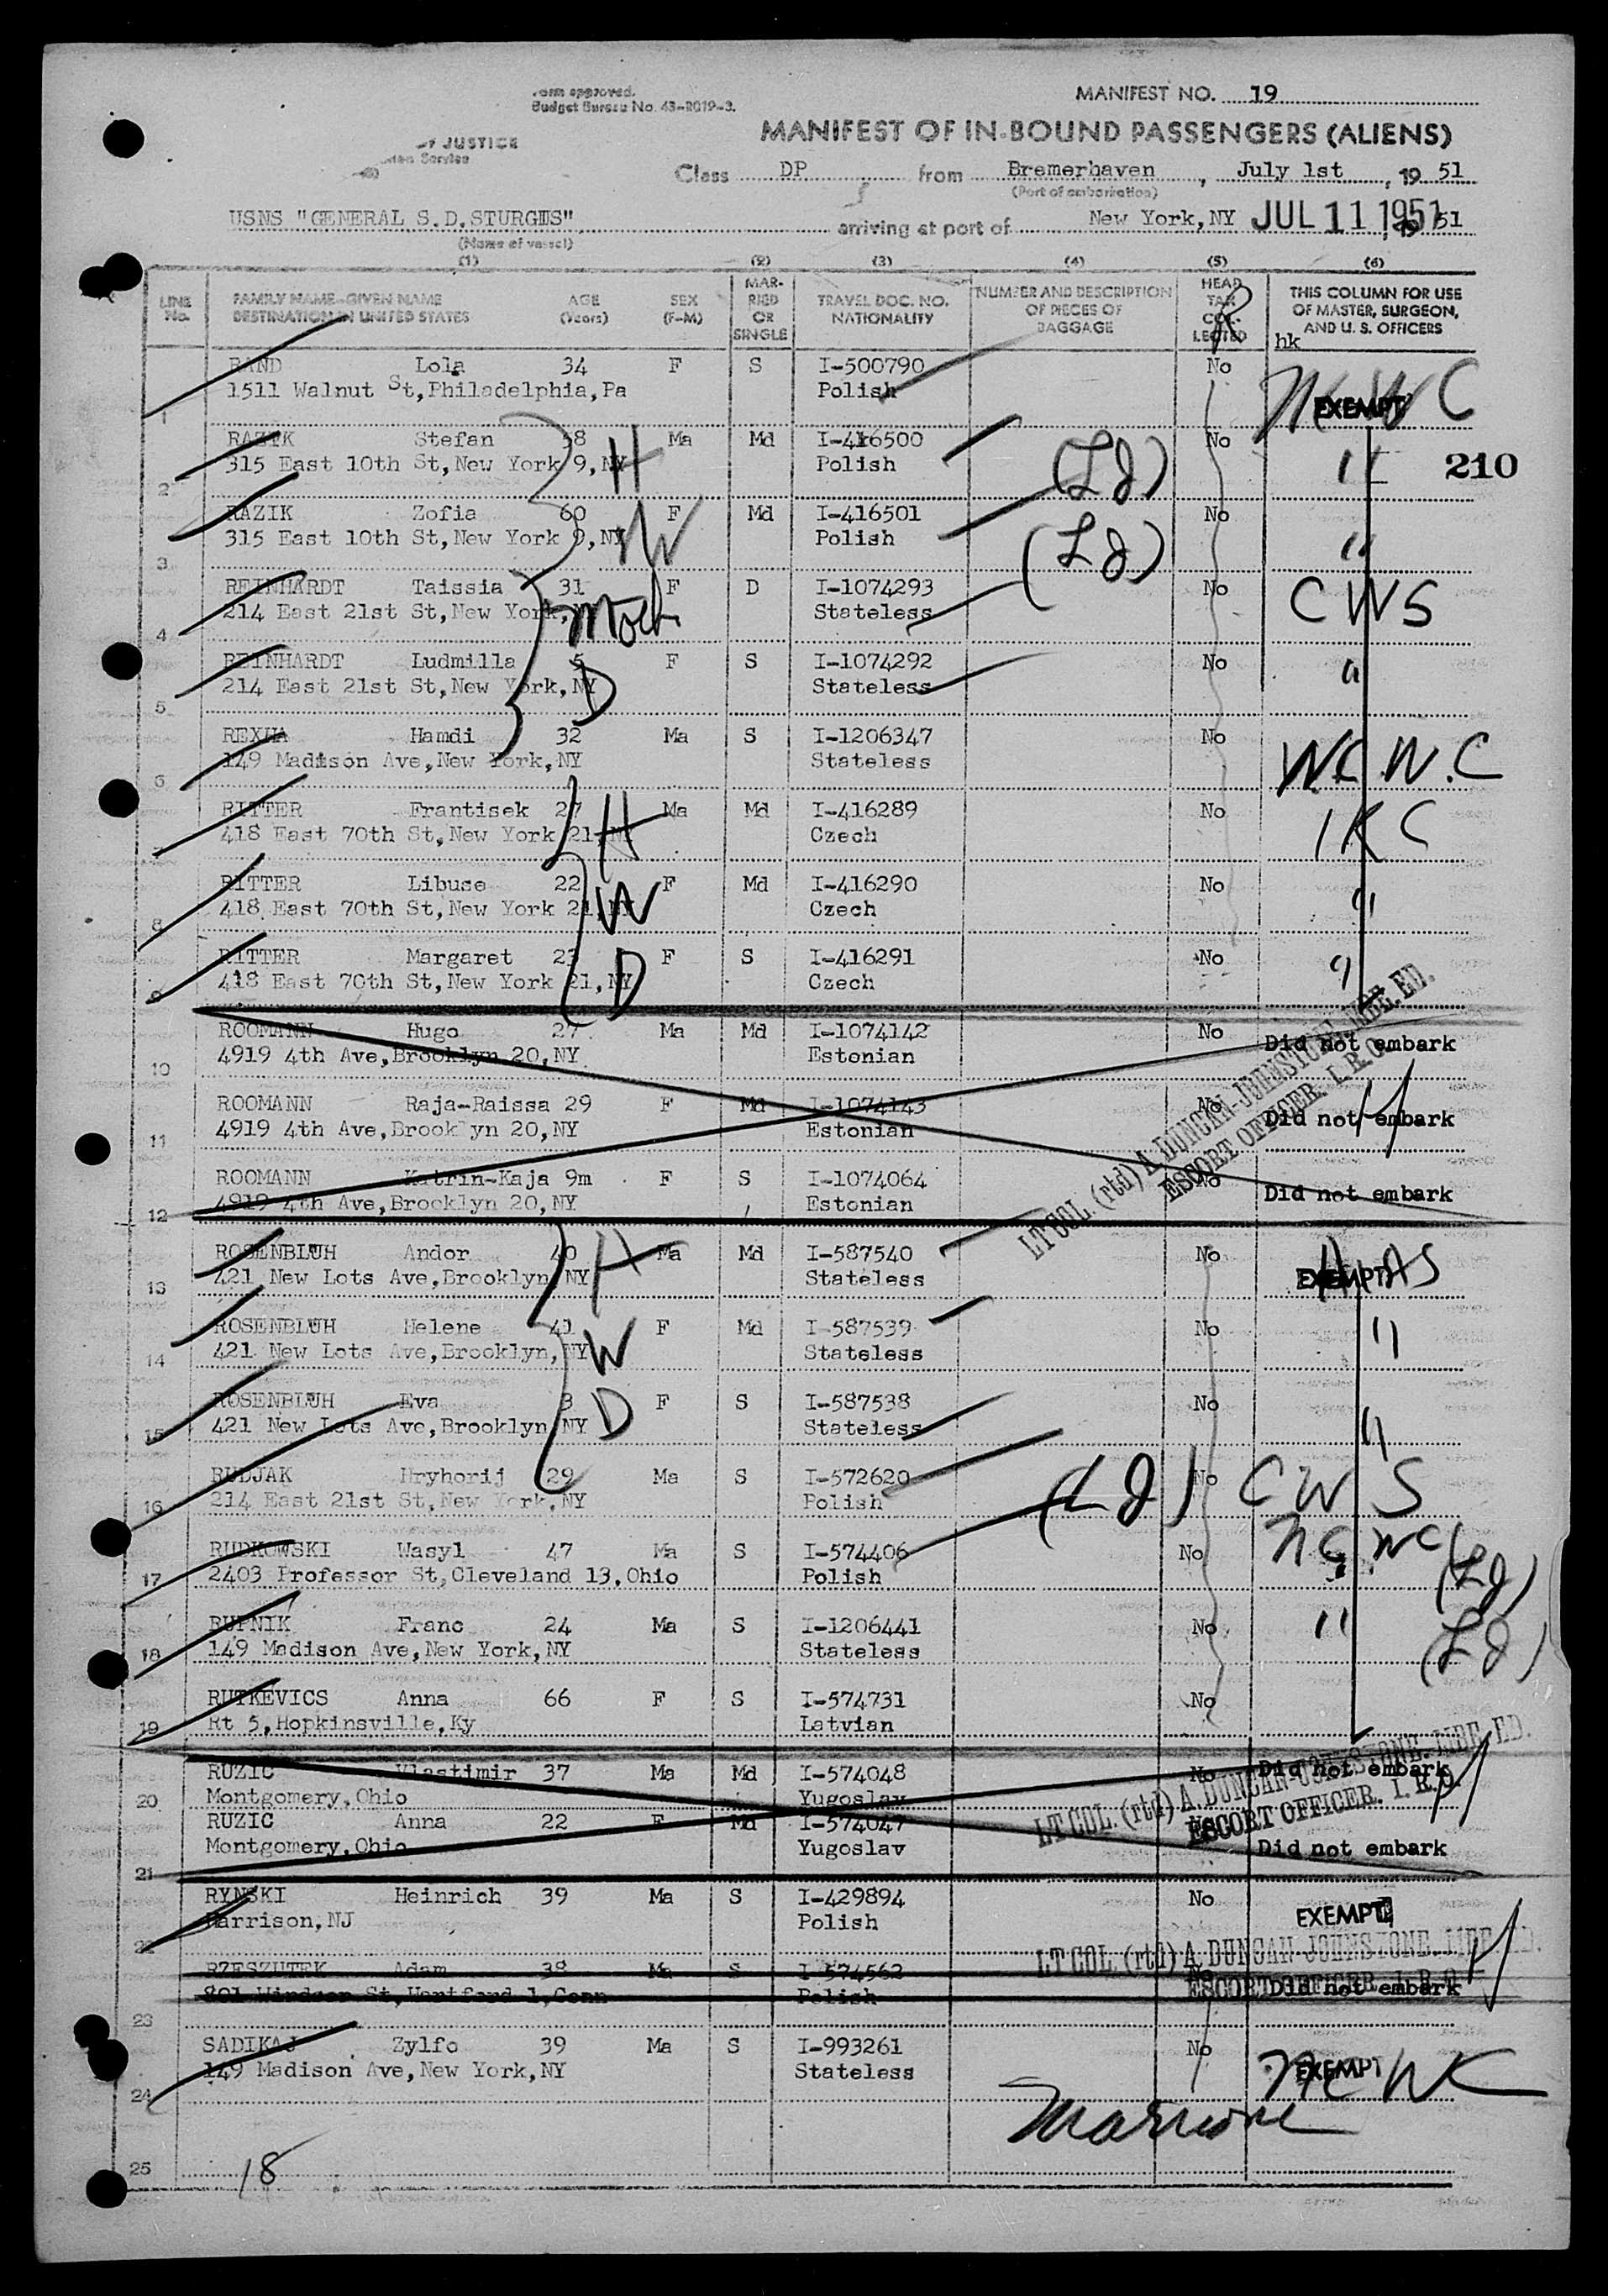 Form approved.
Budget Bureau No. 43-R019-3.
MANIFEST NO. 19
OF JUSTICE
Service
MANIFEST OF IN-BOUND PASSENGERS (ALIENS)
Class DP from Bremerhaven, July 1st, 19 51
(Port of embarkation)
USNS "GENERAL S.D.STURGIS" arriving at port of New York,NY JUL 11 1951 51
(Name of vessel)
(1) (2) (3) (4) (5) (6)
LINE No. FAMILY NAME-GIVEN NAME DESTINATION IN UNITED STATES AGE (Years) SEX (F-M) MARRIED OR SINGLE TRAVEL DOC. NO. NATIONALITY NUMBER AND DESCRIPTION OF PIECES OF BAGGAGE HEAD TAX COLLECTED THIS COLUMN FOR USE OF MASTER, SURGEON, AND U. S. OFFICERS
R hk
RAND Lola 34 F S I-500790 No
1 1511 Walnut St,Philadelphia,Pa Polish EXEMPT NCWC
RAZIK Stefan 58 H Ma Md I-416500 (LJ) No "
2 315 East 10th St,New York 9,NY Polish 210
RAZIK Zofia 60 W F Md I-416501 (LJ) No "
3 315 East 10th St,New York 9,NY Polish
REINHARDT Taissia 31 Moth F D I-1074293 No CWS
4 214 East 21st St,New York,NY Stateless
REINHARDT Ludmilla 5 D F S I-1074292 No "
5 214 East 21st St,New York,NY Stateless
REXHA Hamdi 32 Ma S I-1206347 No N.C.W.C
6 149 Madison Ave,New York,NY Stateless
RITTER Frantisek 27 H Ma Md I-416289 No IRC
418 East 70th St,New York 21,NY Czech
RITTER Libuse 22 W F Md I-416290 No "
8 418 East 70th St,New York 21,NY Czech
RITTER Margaret 23 D F S I-416291 No "
9 418 East 70th St,New York 21,NY Czech
ROOMANN Hugo 27 Ma Md I-1074142 No Did not embark
10 4919 4th Ave,Brooklyn 20,NY Estonian
ROOMANN Raja-Raissa 29 F Md I-1074143 No Did not embark
11 4919 4th Ave,Brooklyn 20,NY Estonian
ROOMANN Katrin-Kaja 9m F S I-1074064 No Did not embark
12 4919 4th Ave,Brooklyn 20,NY Estonian
LT COL. (rtd) A. DUNCAN-JOHNSTONE. MBE. ED.
ESCORT OFFICER. I. R. O.
ROSENBLUH Andor 40 H Ma Md I-587540 No EXEMPT HIAS
13 421 New Lots Ave,Brooklyn,NY Stateless
ROSENBLUH Helene 41 W F Md I-587539 No "
14 421 New Lots Ave,Brooklyn,NY Stateless
ROSENBLUH Eva 3 D F S I-587538 No "
15 421 New Lots Ave,Brooklyn,NY Stateless
RUDJAK Hryhorij 29 Ma S I-572620 (LJ) No CWS
16 214 East 21st St,New York,NY Polish
RUDKOWSKI Wasyl 47 Ma S I-574406 No NCWC (LJ)
17 2403 Professor St,Cleveland 13,Ohio Polish
RUPNIK Franc 24 Ma S I-1206441 No " (LJ)
18 149 Madison Ave,New York,NY Stateless
RUTKEVICS Anna 66 F S I-574731 No
19 Rt 5,Hopkinsville,Ky Latvian
RUZIC Vlastimir 37 Ma Md I-574048 No Did not embark
20 Montgomery,Ohio Yugoslav
RUZIC Anna 22 F Md I-574047 No Did not embark
21 Montgomery,Ohio Yugoslav
LT COL. (rtd) A. DUNCAN-JOHNSTONE. MBE. ED.
ESCORT OFFICER. I. R. O.
RYNSKI Heinrich 39 Ma S I-429894 No EXEMPT
22 Harrison,NJ Polish
RZESZUTEK Adam 38 Ma S I-574562 No Did not embark
801 Windsor St,Hartford 1,Conn Polish
23
LT COL. (rtd) A. DUNCAN-JOHNSTONE. MBE. ED.
ESCORT OFFICER. I. R. O.
SADIKAJ Zylfo 39 Ma S I-993261 No EXEMPT NCWC
24 149 Madison Ave,New York,NY Stateless
25 18